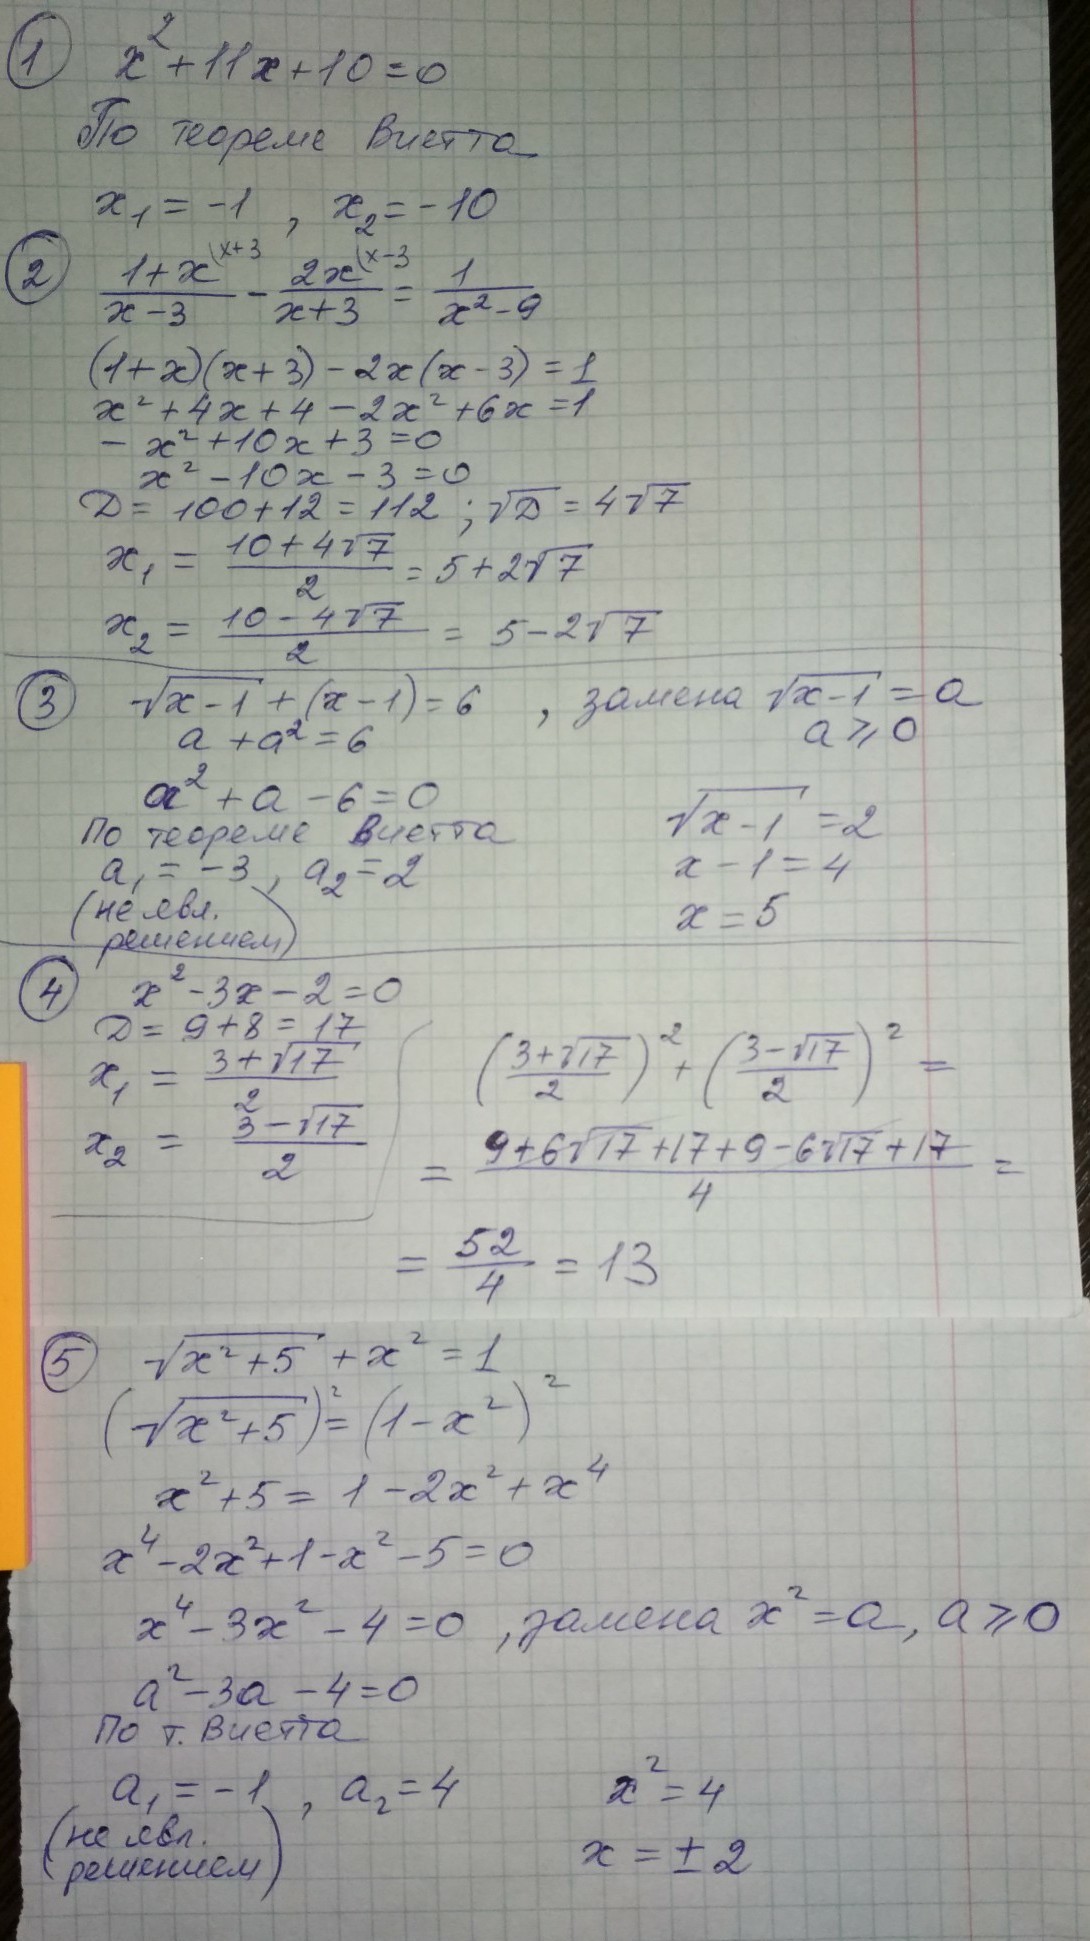 1 x² + 11x + 10 = 0
По теореме Виетта
x₁ = -1 , x₂ = -10
2 (1+x)/(x-3) (x+3 - 2x/(x+3) (x-3 = 1/(x²-9)
(1+x)(x+3) - 2x(x-3) = 1
x² + 4x + 4 - 2x² + 6x = 1
- x² + 10x + 3 = 0
x² - 10x - 3 = 0
D = 100+12 = 112 ; √D = 4√7
x₁ = (10+4√7)/2 = 5+2√7
x₂ = (10-4√7)/2 = 5-2√7
3 √(x-1) + (x-1) = 6 , замена √(x-1) = a
a + a² = 6 a ⩾ 0
a² + a - 6 = 0
По теореме Виетта
a₁ = -3 , a₂ = 2
(не явл.
решением)
√(x-1) = 2
x - 1 = 4
x = 5
4 x² - 3x - 2 = 0
D = 9+8 = 17
x₁ = (3+√17)/2
x₂ = (3-√17)/2
((3+√17)/2)² + ((3-√17)/2)² =
= (9+6√17+17+9-6√17+17)/4 =
= 52/4 = 13
5 √(x²+5) + x² = 1
(√(x²+5))² = (1-x²)²
x²+5 = 1 - 2x² + x⁴
x⁴ - 2x² + 1 - x² - 5 = 0
x⁴ - 3x² - 4 = 0 , замена x² = a, a ⩾ 0
a² - 3a - 4 = 0
По т. Виетта
a₁ = -1 , a₂ = 4
(не явл.
решением)
x² = 4
x = ± 2